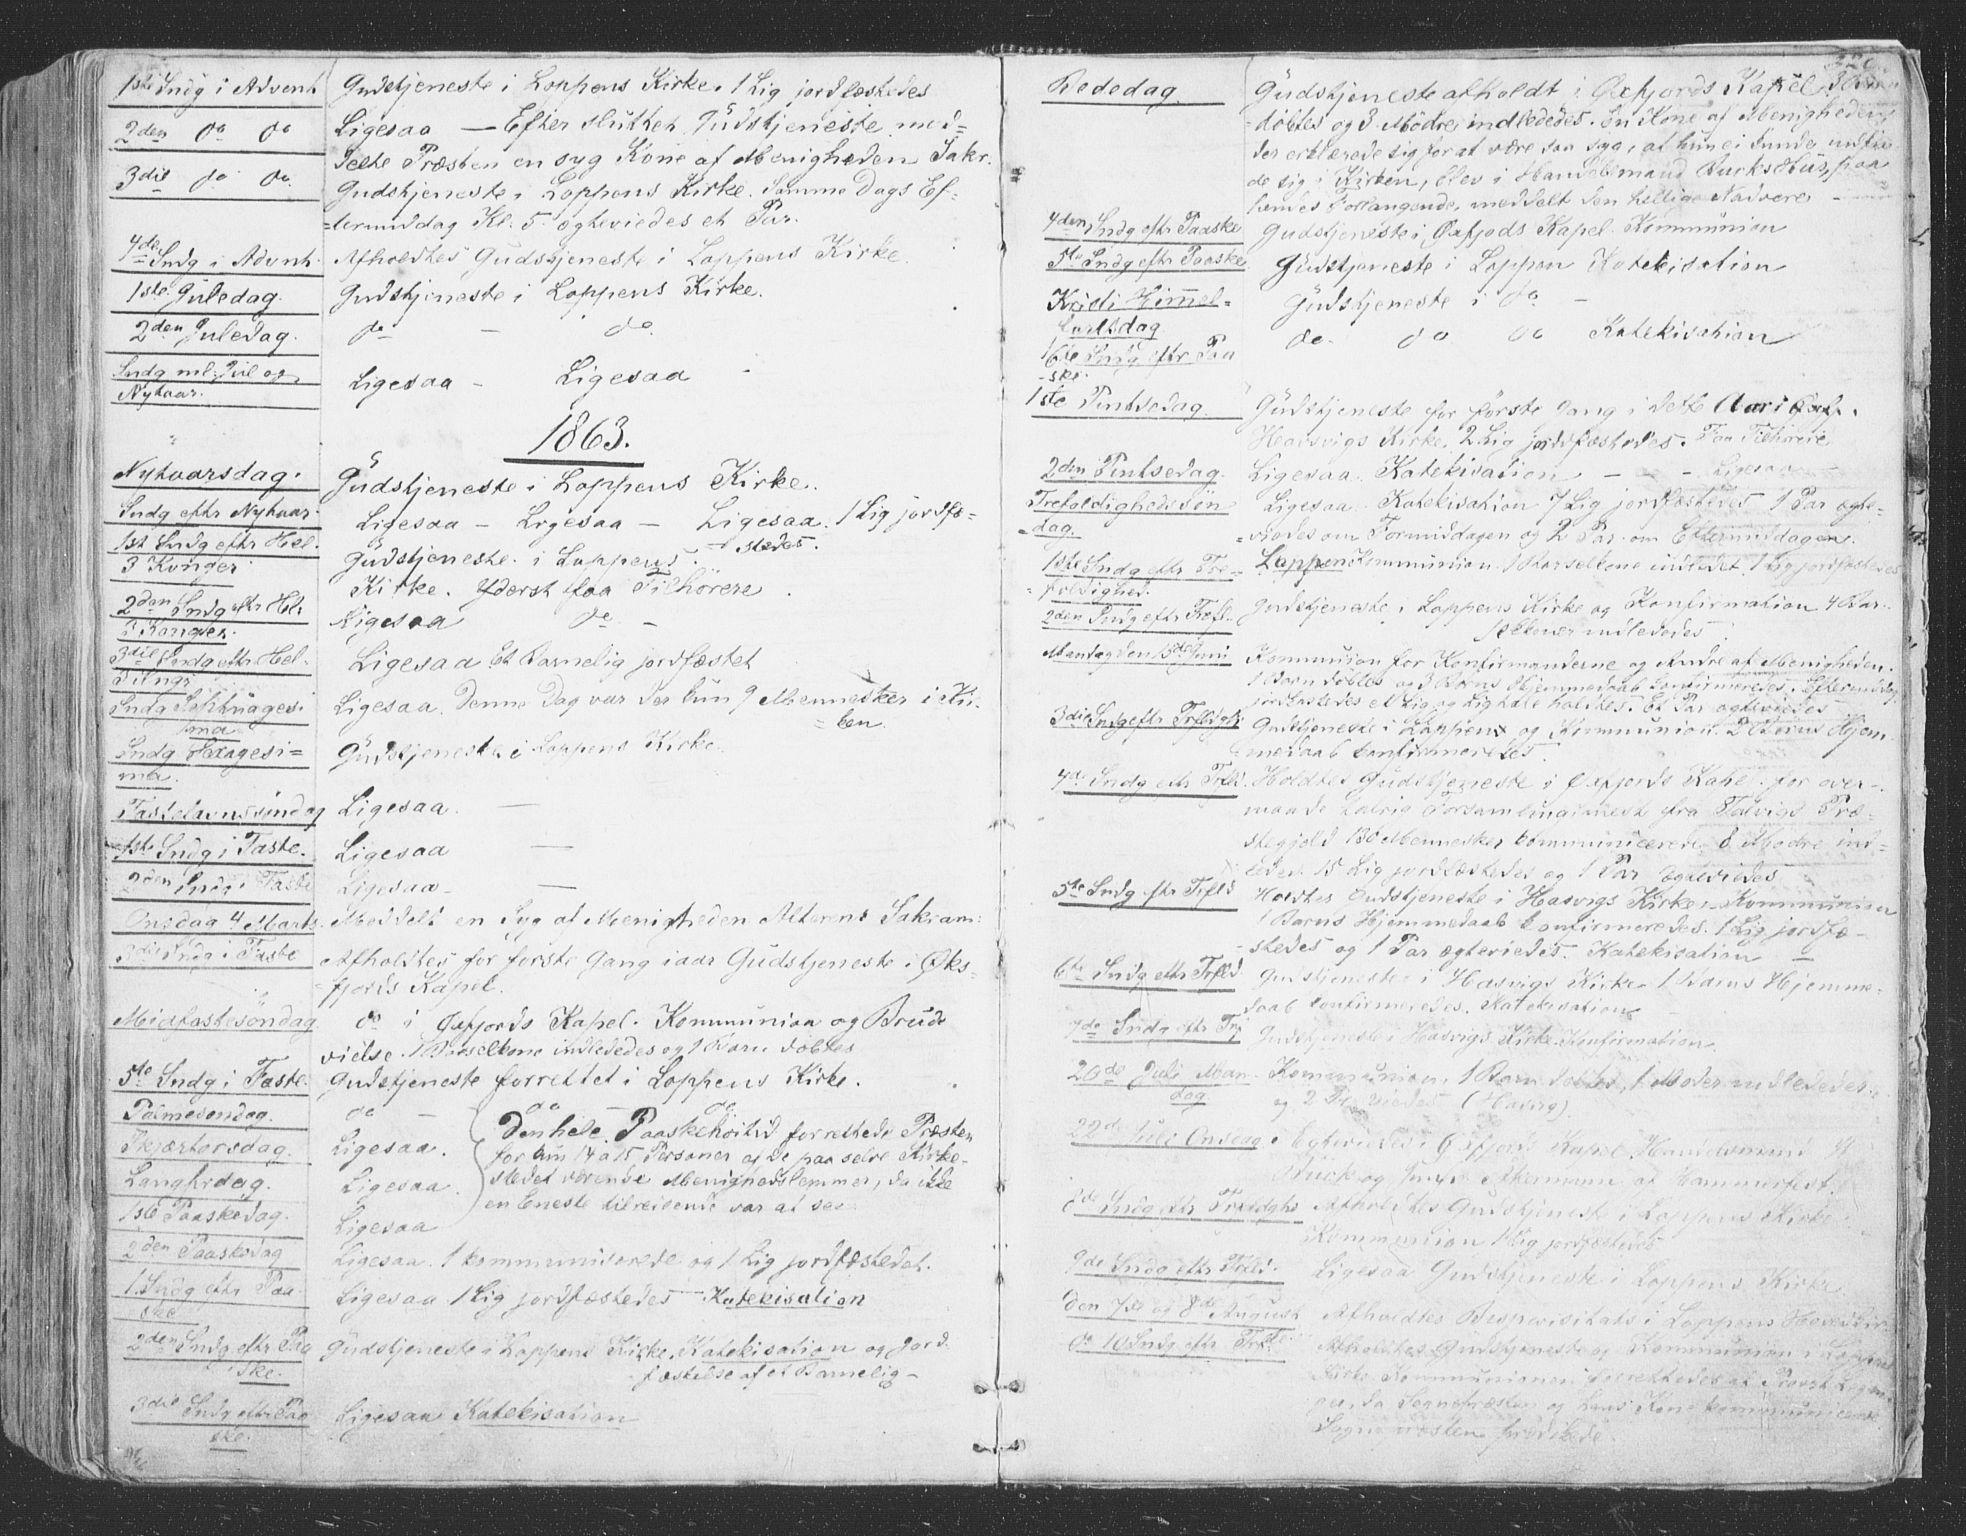 1ste Sndg i Advent Gudstjeneste i Loppens Kirke. 1 Lig jordfæstedes
2den do do Ligesaa — Efter sluttet Gudstjeneste med=
deelte Præsten en syg Kone af Menigheden Sakr.
3die do do. Gudstjeneste i Loppens Kirke. Samme Dags Ef-
=termiddag Kl. 5 ægteviedes et Par.
4de Sndg i Advent. Afholdtes Gudstjeneste i Loppens Kirke.
1ste Juledag. Gudstjeneste i Loppens Kirke.
2den Juledag. do — do
Sndg mel. Juul og
Nytaar. Ligesaa — Ligesaa
1863.
Nytaarsdag. Gudstjeneste i Loppens Kirke.
Sndg eftr Nytaar. Ligesaa — Ligesaa — Ligesaa. 1 Lig jordfæ=
stedes.
1st Sndg eftr Hel. Gudstjeneste i Loppens
3 Konger Kirke. Yderst faa Tilhörere
2den Sndg eftr Hel.
3 Konger. Ligesaa do —
3die Sndg eftr Hel- Ligesaa Et Barnelig jordfæstet
3 Kngr
Sndg Septuagesi Ligesaa. Denne Dag var der kun 9 Mennesker i Kir
ma =ken
Sndg Sexagesi= Gudstjeneste i Loppens Kirke.
ma.
Fastelavnssöndag Ligesaa. —
1ste Sndg i Faste. Ligesaa —
2den Sndg i Faste Ligesaa —
Onsdag 4 Marts. Meddelt en Syg af Menigheden Alterens Sakram:
3die Sndg i Faste Afholdtes for förste Gang i aar Gudstjeneste i Öks-
fjords Kapel.
Midfastesöndag do i Öxfjords Kapel. Kommunion og Brud
vielse. 1 Barselkone indlededes og 1 Barn döbtes
5te Sndg i Faste. Gudstjeneste forrettet i Loppens Kirke.
Palmesöndag. do — do — do
Skjærtorsdag. Ligesaa. Den hele Paaskehöitid forrettede Præsten
for kun 14 a 15 Personer og de paa selve Kirke-
Langfrdag. Ligesaa. stedet værende Menighedslemmer, da ikke
en Eneste tilreisende var at see
1ste Paaskedag. Ligesaa
2den Paaskedag Ligesaa. 1 kommunicerede og 1 Lig jordfæstedet.
1. Sndg eftr Paa Ligesaa 1 Lig jordfæstedes — Katekisation
ske
2den Sndg eftr Paa Gudstjeneste i Loppens Kirke, Katekisation og Jord
ske. fæstelse af et Barnelig —
3die Sndg eftr Paa Ligesaa Katekisation
ske.
Bededag. Gudstjeneste afholdt i Öxfjords Kapel 3 Börn
=döbtes og 3 Mödre indlededes. En Kone af Menigheden,
der erklærede sig for at være saa syg, at hun ei kunde indfin
de sig i Kirken, blev i Handelsmand Bucks Huus, paa
hendes Forlangende, meddelt den hellige Nadvere —
4den Sndg eftr Paaske Gudstjeneste i Öxfjords Kapel. Kommunion
5te Sndg eftr Paaske Gudstjeneste i Loppen Katekisation
Kristi Himmel= Gudstjeneste i do —
fartsdag
6te Sndg eftr Paa do. do do Katekisation
ske.
1ste Pintsedag. Gudstjeneste for förste Gang i dette Aar i
Hasvigs Kirke. 2 Lig jordfæstedes. Faa Tilhörere
2den Pintsedag. Ligesaa. Katekisation — — Ligesaa —
Trefoldighedssön Ligesaa. Katekisation 7 Lig jordfæstedes 1 Par ægte-
=dag. =viedes om Formiddagen og 2 Par om Eftermiddagen.
1ste Sndg eftr Tre- Loppen Kommunion. 1 Barselkone indledet. 1 Lig jordfæstedes
foldighed.
2den Sndg eftr Trefl. Gudstjeneste i Loppens Kirke og Konfirmation 4 Bar-
selkoner indlededes.
Mandag den 15de Juni Kommunion for Konfirmanderne og Andre af Menigheden.
1 Barn döbtes og 3 Börns Hjemmedaab konfirmeredes. Eftermiddag
jordfæstedes et Lig og Ligtale holdtes. Et Par ægteviedes
3die Sndg eftr Trfldgh. Gudstjeneste i Loppens og Kommunion. 2 Börns Hjem-
medaab konfirmeredes.
4de Sndg eftr Trfld. Holdtes Gudstjeneste i Öxfjords Kapel for over-
maade talrig Forsamling, mest fra Talvigs Præ-
stegjeld 130 Mennesker kommunicerede 8 Mödre ind-
lededes 15 Lig jordfæstedes og 1 Par ægteviedes
5te Sndg eftr Trfld Holdtes Gudstjeneste i Hasvigs Kirke. Kommunion
1 Barns Hjemmedaab konfirmeredes. 1 Lig jordfæ-
stedes og 1 Par ægteviedes. Katekisation
6te Sndg eftr Trfld Gudstjeneste i Hasvigs Kirke 1 Barns Hjemme-
daab konfirmeredes. Katekisation
7de Sndg eftr Trf Gudstjeneste i Hasvigs Kirke. Konfirmation.
20de Juli Man- Kommunion, 1 Barn döbtes, 1 Moder indlededes
dag. og 2 Par viedes (Hasvig).
22de Juli Onsdag Egteviedes i Öxfjord Kapel Handelsmand
Buck og af Hammerfest.
8de Sndg eftr Trfoldghd Afholdtes Gudstjeneste i Loppens Kirke
Kommunion 1 Lig jordfæstedes
9de Sndg eftr Trfld. Ligesaa Gudstjeneste i Loppens Kirke
Den 7de og 8de August Afholdtes Bispevisitats i Loppens
do 10 Sndg eftr Trf. Afholdtes Gudstjeneste og Kommunion i Loppens
Kirke Kommunionen forrettedes af Provst
da Sognepræsten og hans Kone kommunicerede
Sognepræsten prædikede.